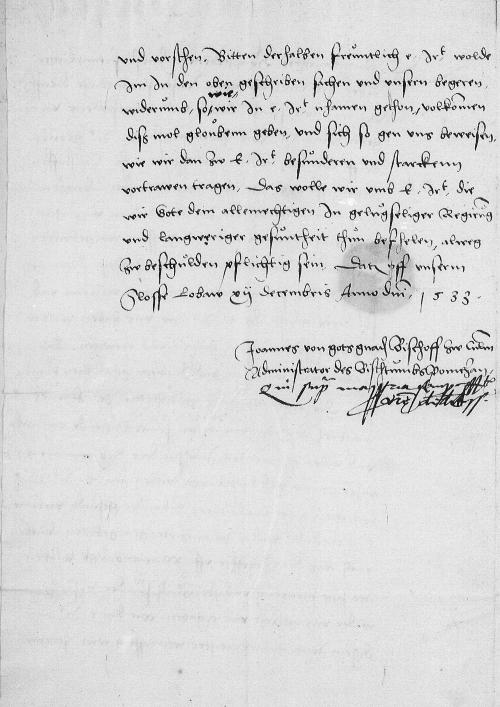 vnd vorsehen. Bitten derhalben freuntlich e. Irt wolde
Im In den oben gescheiben sachen vnd vnsern begeren,
wie
widerumb, so wir In e. Irt nhamen gethon, volkomen
diss mol gloubenn geben, vnd sich so gen vns beweisen,
wie wir dan zw E. Irt besunderen vnd starckenn
vortrawen tragen, Das wolle wir vmb E. Irt, die
wir Gote dem allemechtigen In gelugseliger Regirung
vnd langweriger gesuntheit thun befhelen, alweg
zw beschulden pflichtig sein. Datum vff vnserm
Slosse Lobaw xij decembris Anno dni, 1533.
Joannes von gots gnad Bischoff zw Culm
Administrator des Bischtumbs Pomezan.